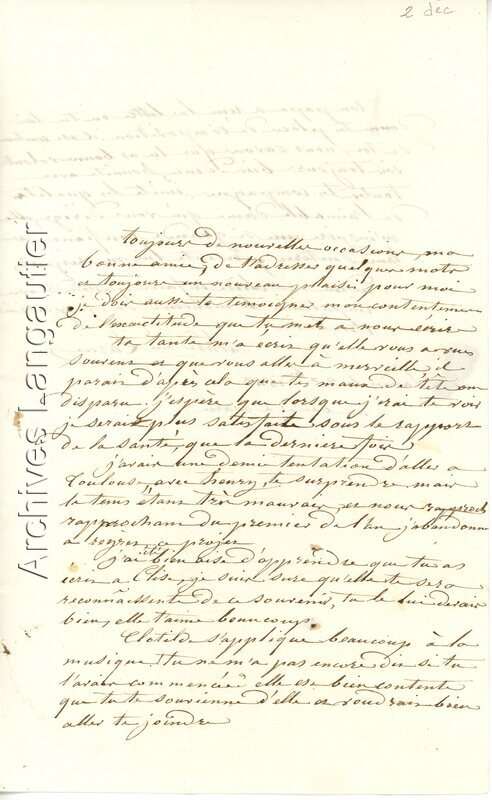 2 déc
toujours de nouvelles occasions, ma
bonne amie, de t'adresser quelques mots
et toujours un nouveau plaisir pour moi
je dois aussi te temoigner mon contentement
de l'exactitude que tu met a nous ecrire
ta tante m'a écris qu'elle vous a vues
souvent et que vous allez à merveille, il
parait d'apres cela que tes maux de tête ont
disparu. j'espère que lorsque j'irai te voir
je serais plus satisfaite sous le rapport
de la santé, que la derniere fois
j'avais une demie tentation d'aller a
Toulouse, avec henry, te surprendre mais
le tems étant très mauvais et nous rapproch
rapprochant du premier de l'an j'abandonne
a regret ce projet
j'ai été bien aise d'apprendre que tu as
ecris a Elise, je suis sure qu'elle te sera
reconnaissente de ce souvenir, tu le lui devais
bien, elle t'aime beaucoup.
Clotilde s'applique beaucoup à la
musique. tu ne m'a pas encore dis si tu
l'avais commencée elle est bien contente
que tu te souvienne d'elle et voudrais bien
aller te joindre
Archives Langautier